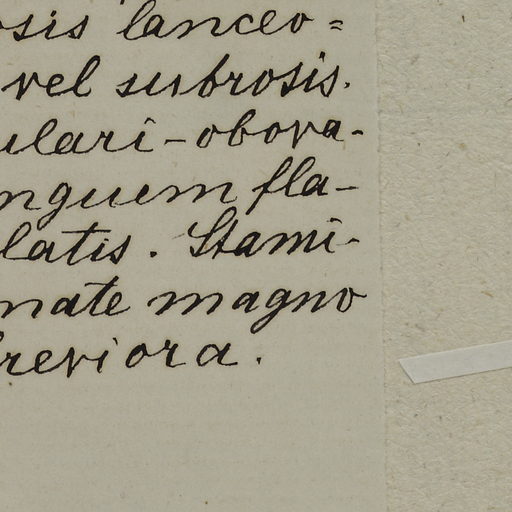 osis lanceo=
vel subrosis.
ulari-obova-
nguem fla-
latis. Stami-
nate magno
breviora.